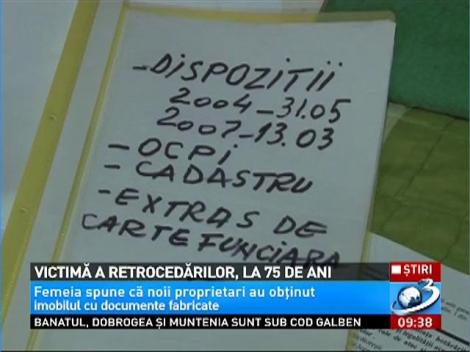 -DISPOZITII
2004-31.05
2007-13.03
-OCPI
-CADASTRU
-EXTRAS DE
CARTE FUNCIARA
VICTIMĂ A RETROCEDĂRILOR, LA 75 DE ANI
ȘTIRI
Femeia spune că noii proprietari au obținut
imobilul cu documente fabricate
3
BANATUL, DOBROGEA ȘI MUNTENIA SUNT SUB COD GALBEN
09:38